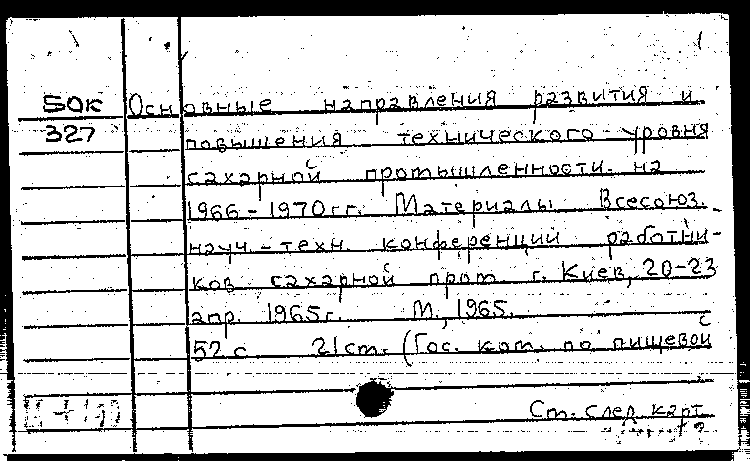 50к Основные направления развития и
327 повышения технического уровня
сахарной промышленности на
1966-1970 гг. Материалы Всесоюз.
науч-техн. конференций работни-
ков сахарной пром г. Киев, 20-23
апр. 1965г. М., 1965.
52 с 21 см. (Гос. ком. по пищевой
См. след карт